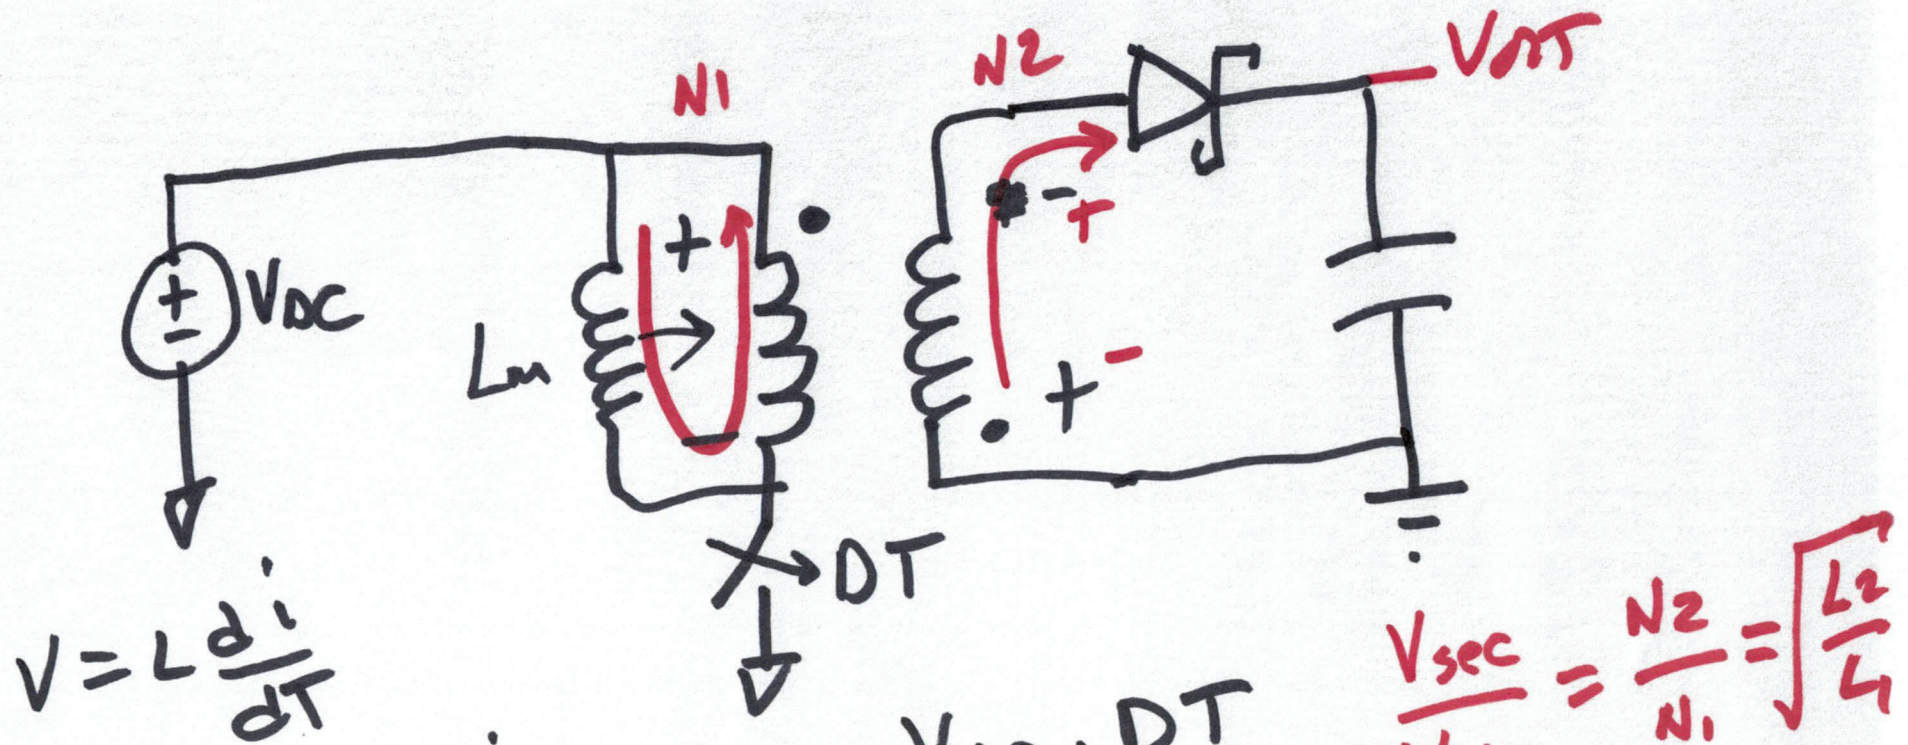 N1
N2
VOUT
+
-
VDC
Lm
+
-
-
+
+
-
DT
V = L di/dT
DT
Vsec/ = N2/N1 = √L2/L1